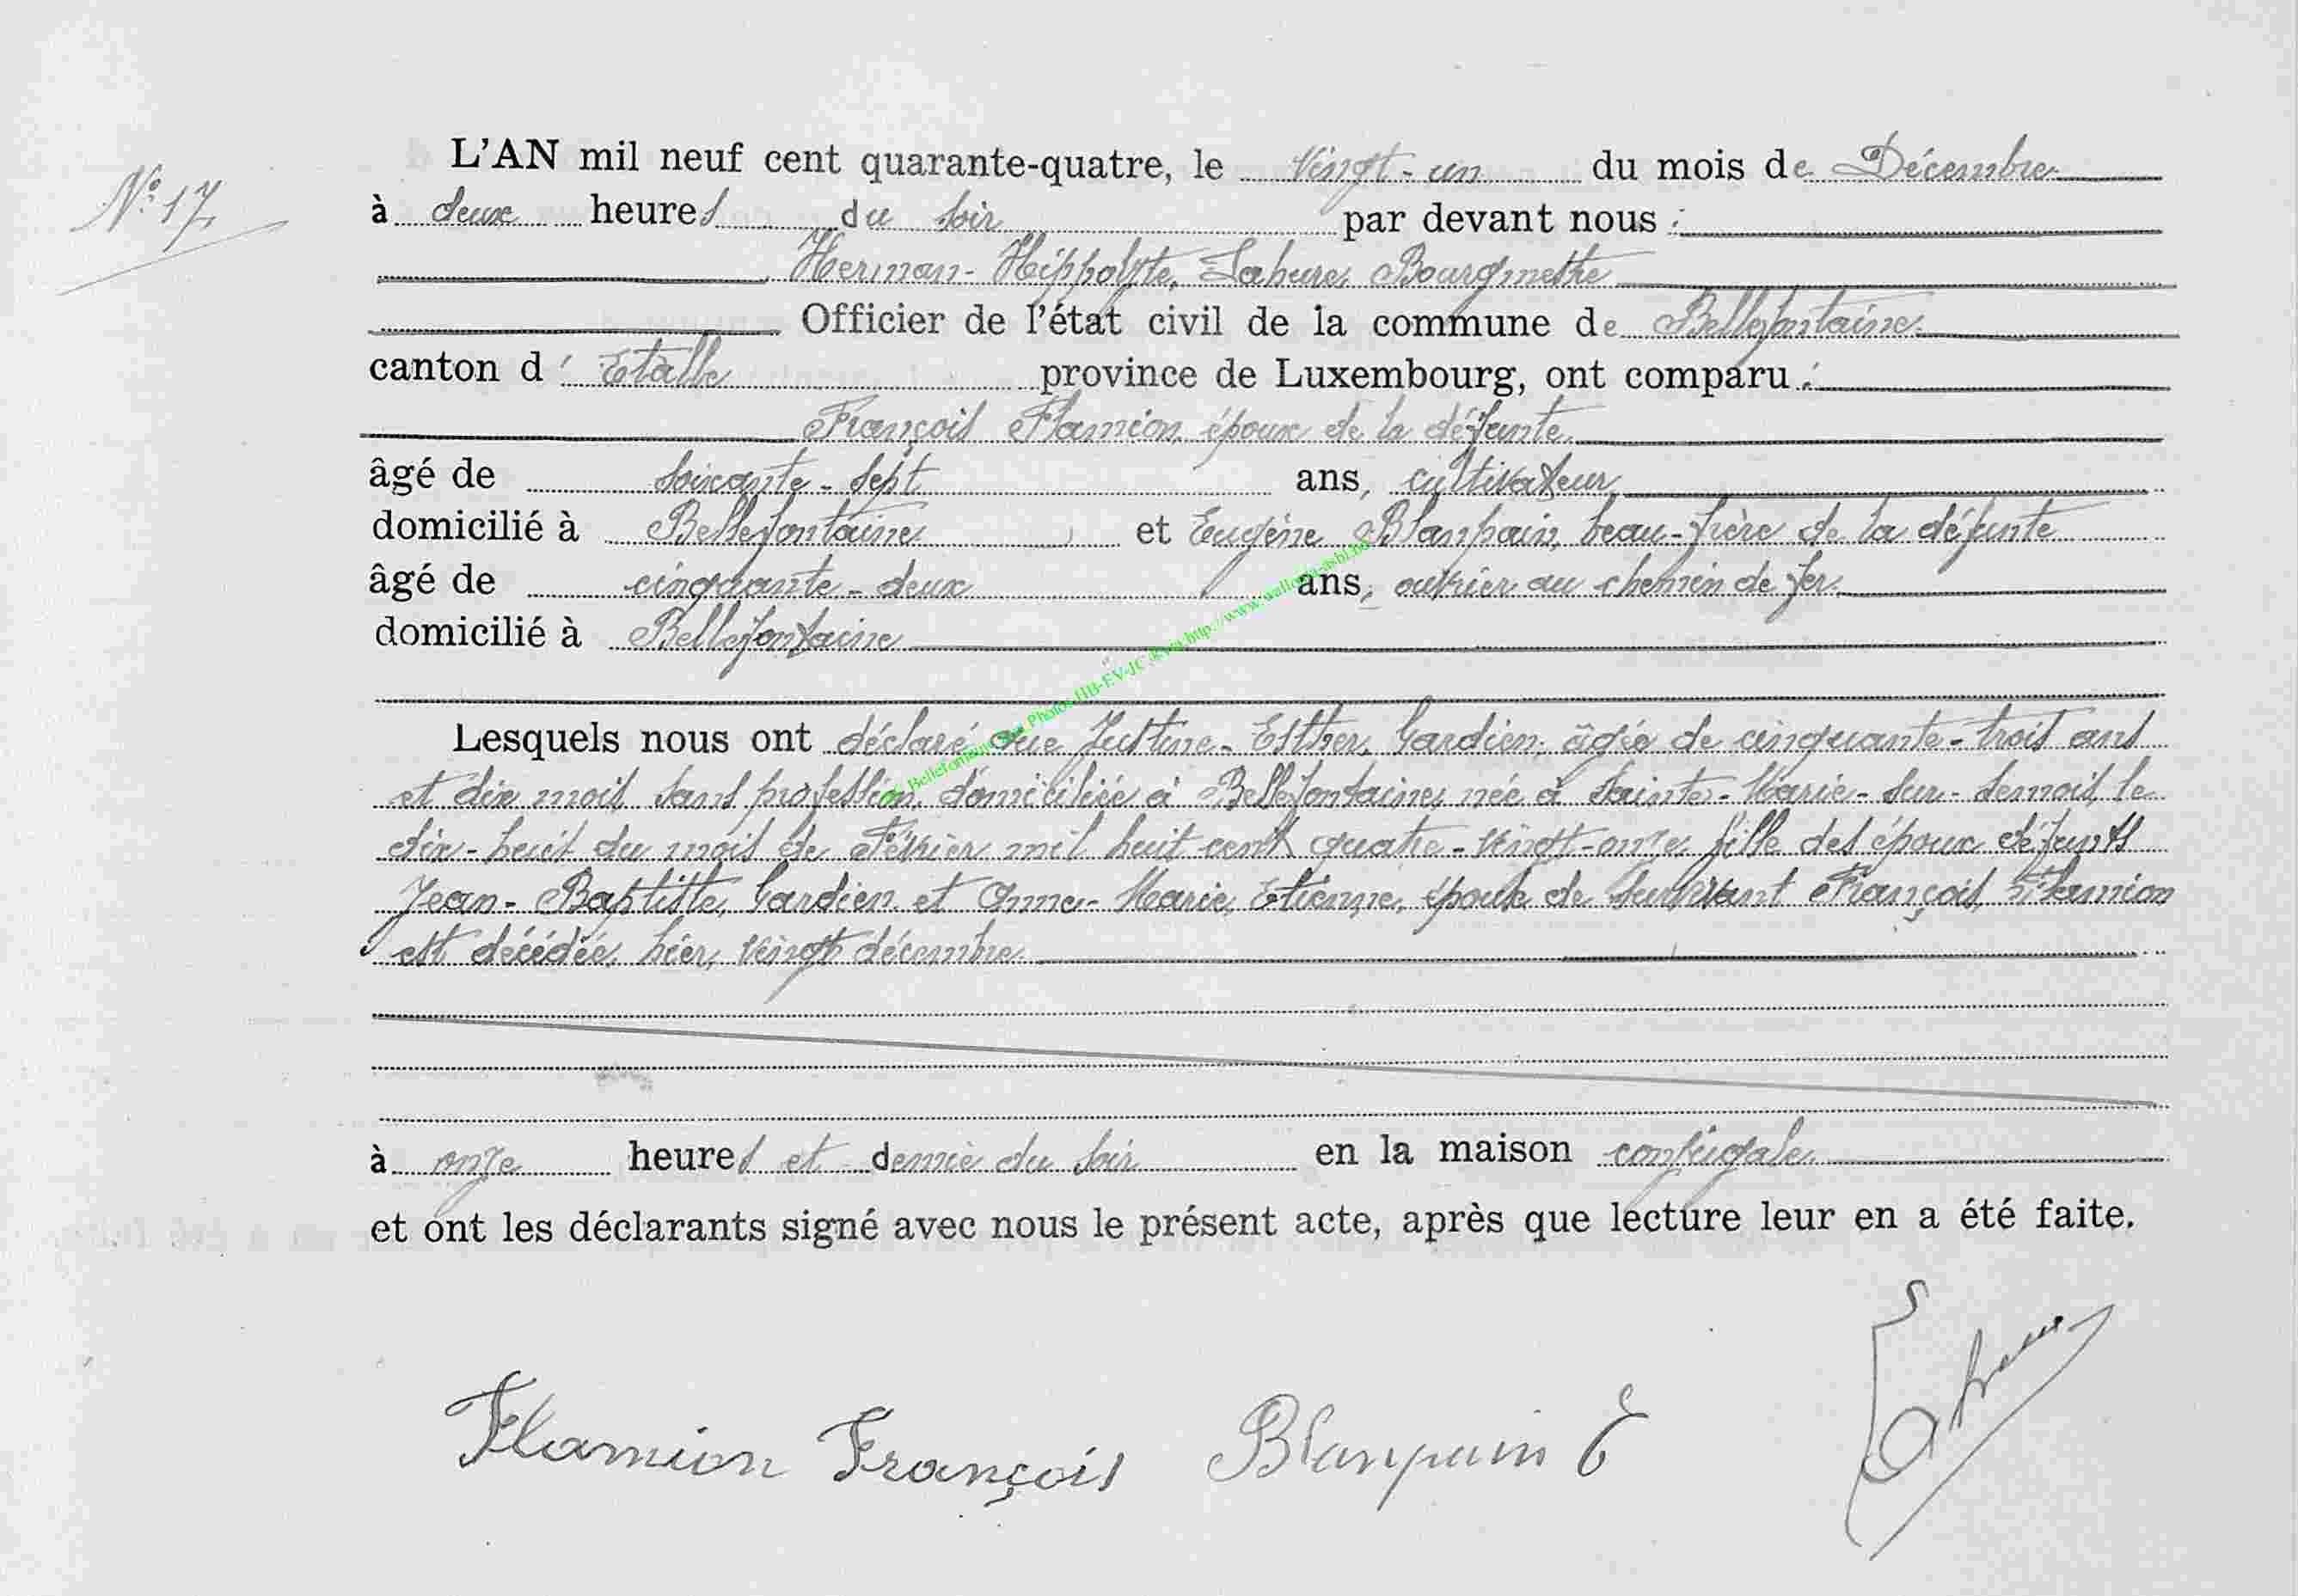 N° 17
L'AN mil neuf cent quarante-quatre, le Vingt-un du mois de Décembre
à deux heures du soir par devant nous :
Herman-Hippolyte, Lahure, Bourgmestre
Officier de l'état civil de la commune de Bellefontaine
canton d' Etalle province de Luxembourg, ont comparu :
François Flamion, époux de la défunte
âgé de soixante-sept ans, cultivateur,
domicilié à Bellefontaine et Eugène Blanpain, beau-frère de la défunte
âgé de cinquante-deux ans, ouvrier au chemin de fer
domicilié à Bellefontaine
Lesquels nous ont déclaré que Justine-Esther, Gardien, âgée de cinquante-trois ans
et dix mois sans profession, domiciliée à Bellefontaine, née à Sainte-Marie-sur-Semois, le
dix-huit du mois de Février mil huit cent quatre-vingt-onze, fille des époux défunts
Jean-Baptiste, Gardien et Anne-Marie, Etienne, épouse de survivant François, Flamion
est décédée, hier, vingt décembre
à onze heures et demie du soir en la maison conjugale
et ont les déclarants signé avec nous le présent acte, après que lecture leur en a été faite.
Flamion François Blanpain E